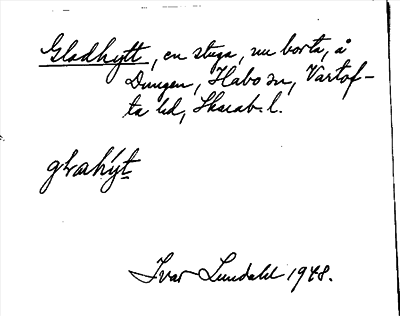 Gladhytt, en stuga, nu borta, å
Dungen, Habo sn, Vartof-
ta hd, Skarab. l.
glahýt
Ivar Lundahl 1948.